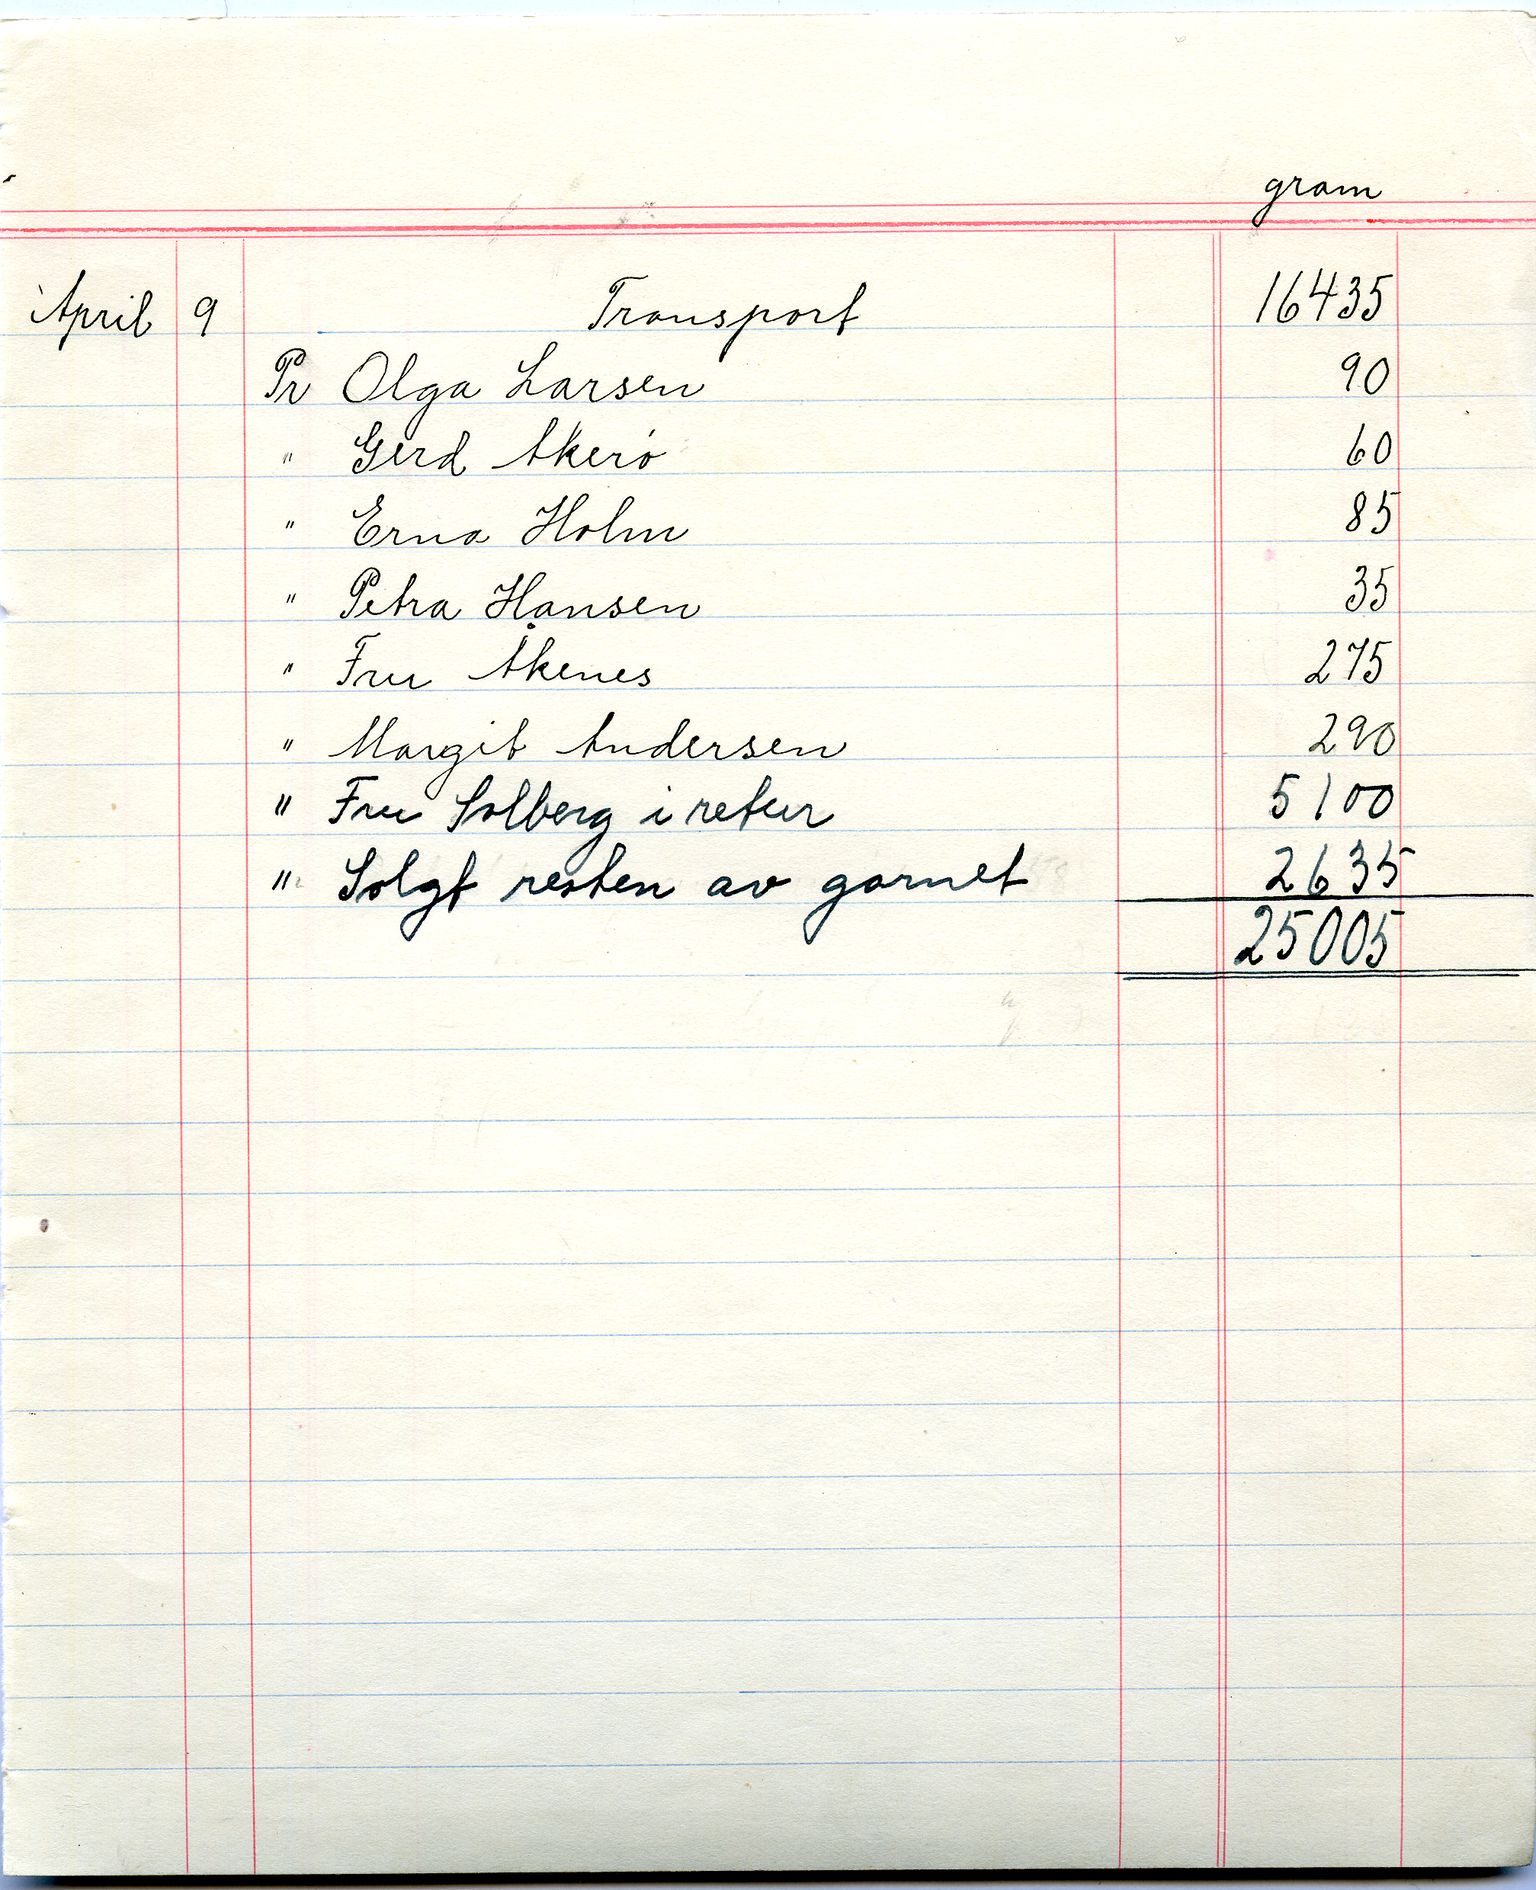 gram
April 9 Transport 16435
Pr Olga Larsen 90
" Gerd Akerø 60
" Erna Holm 85
" Petra Hansen 35
" Fru Åkenes 275
" Margit Andersen 290
" Fru Solberg i retur 5100
" Solgt resten av garnet 2635
25005